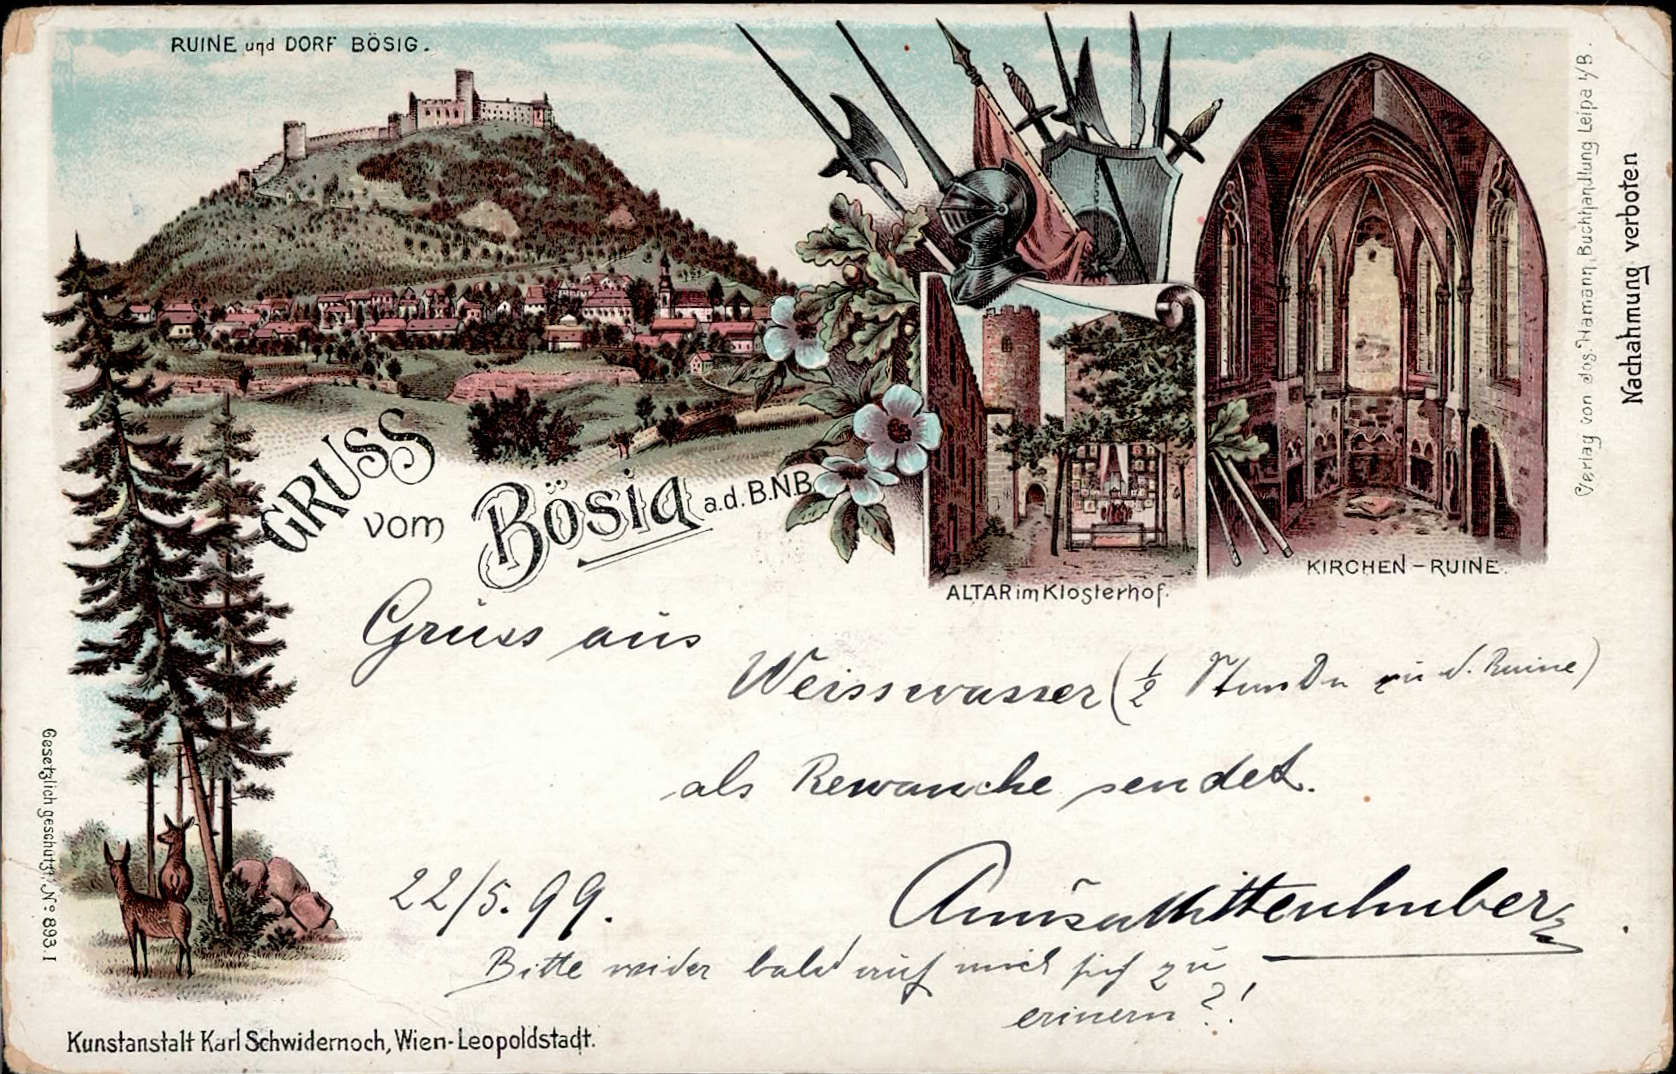 RUINE und DORF BÖSIG.
GRUSS
vom Bösig a.d. B.N.B.
ALTAR im Klosterhof.
KIRCHEN-RUINE.
Verlag von Jos. Hamann, Buchhandlung Leipa i/B.
Nachahmung verboten
Grüss aus
Weisswasser (1/2 Stunde zu d. Ruine)
als Rewanche sendet.
22/5.99.
Mittenhuber
Bitte wider bald auf mich sich zu
erinern?!
Gesetzlich geschützt. No 893. I
Kunstanstalt Karl Schwidernoch, Wien-Leopoldstadt.